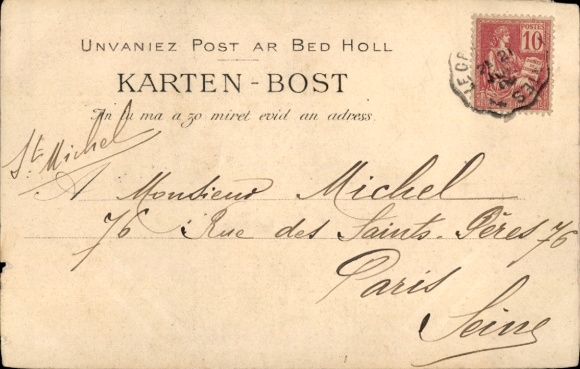 UNVANIEZ POST AR BED HOLL
KARTEN-BOST
An tu ma a zo miret evid an adress
POSTES
10
St Michel
A Monsieur Michel
76 Rue des Saints-Pères 76
Paris
Seine